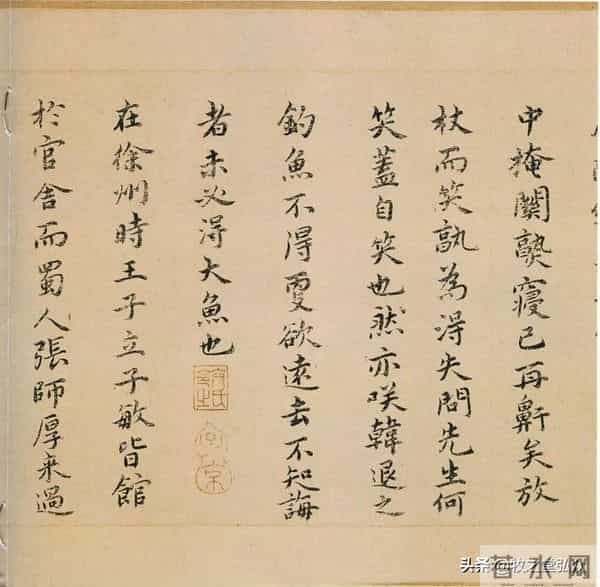 中掩關熟寢已再鼾矣放
杖而笑孰為得失問先生何
笑蓋自笑也然亦咲韓退之
釣魚不得更欲遠去不知誨
者未必得大魚也
在徐州時王子立子敏皆館
於官舍而蜀人張師厚来過
头条